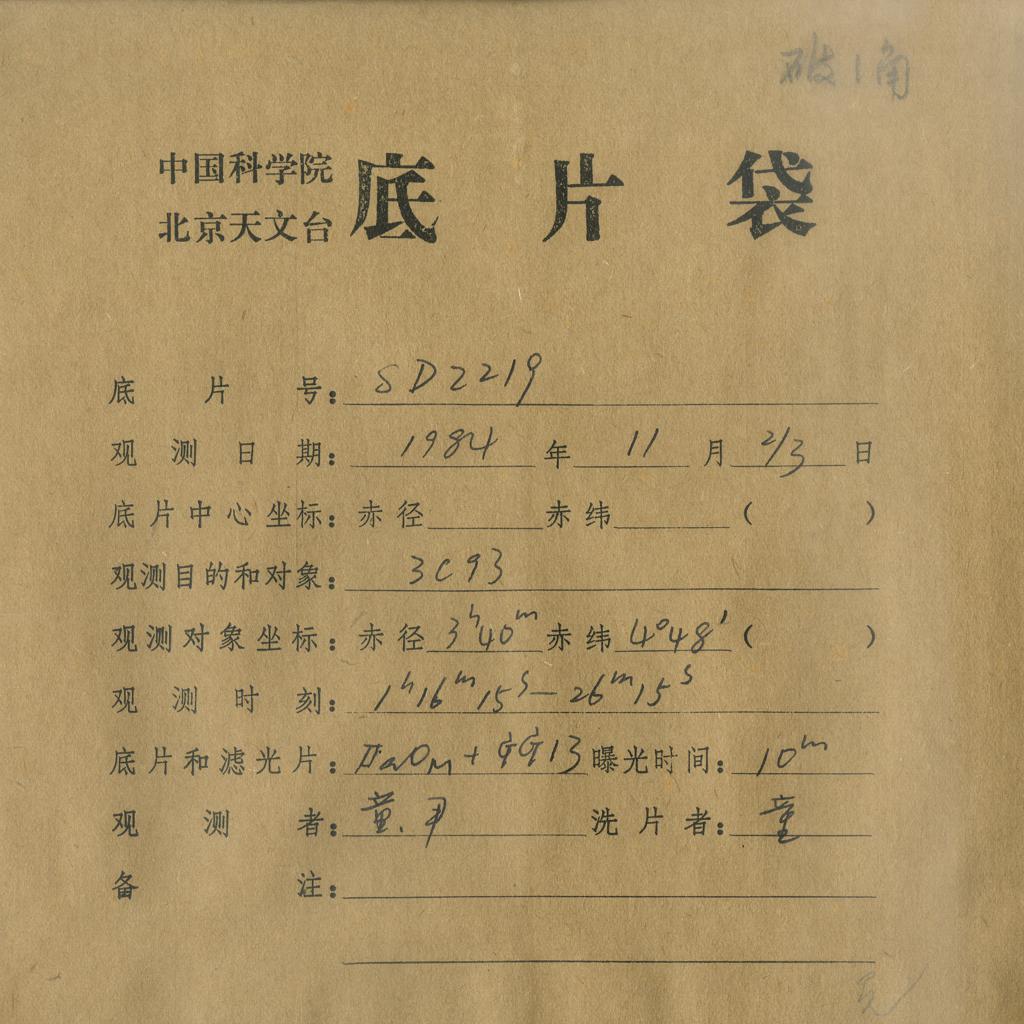 破1角
中国科学院
北京天文台
底片袋
底片号：SD2219
观测日期：1984年11月2/3日
底片中心坐标：赤径 赤纬 （ ）
观测目的和对象：3C93
观测对象坐标：赤径3h40m赤纬4°48′（ ）
观测时刻：1h16m15s—26m15s
底片和滤光片：IIaOM+GG13曝光时间：10m
观测者：童.尹 洗片者：童
备注：